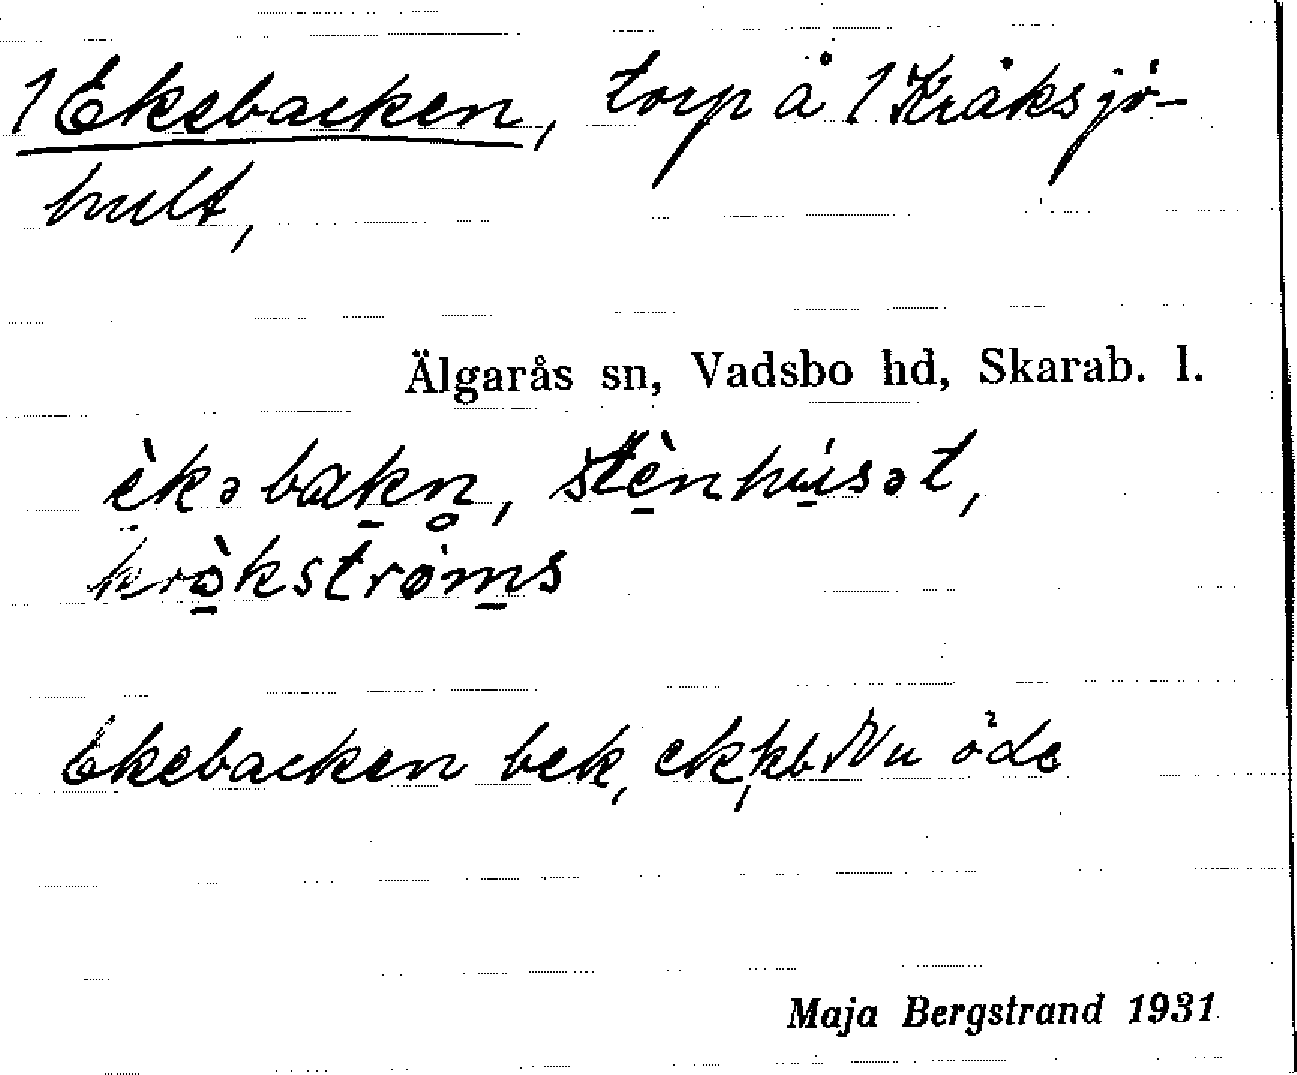 1 Ekebacken, torp å 1 Kråksjö-
hult,
Älgarås sn, Vadsbo hd, Skarab. l.
è̱kəbaḵn̥, stè̱nhú̱sət,
krò̱kstrøm̱s
Ekebacken bek, ek, kb Nu öde
Maja Bergstrand 1931